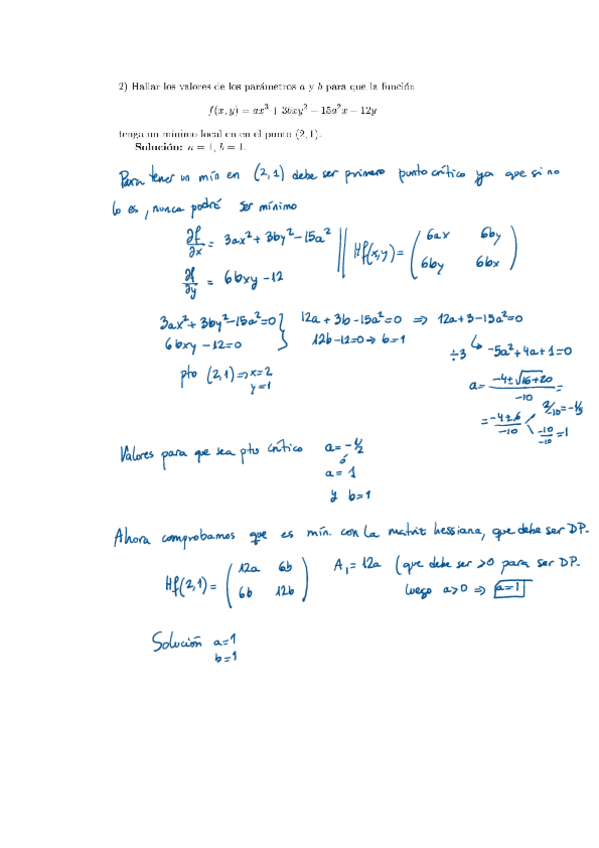 2) Hallar los valores de los parámetros a y b para que la función
f(x, y) = ax³ + 3bxy² − 15a²x − 12y
tenga un mínimo local en en el punto (2, 1).
Solución: a = 1, b = 1.
Para tener un mín en (2,1) debe ser primero punto crítico ya que si no
lo es, nunca podrá ser mínimo
∂f/∂x = 3ax² + 3by² − 15a² || Hf(x,y) = (6ax 6by
∂f/∂y = 6bxy − 12 6by 6bx)
3ax² + 3by² − 15a² = 0 } 12a + 3b − 15a² = 0 ⇒ 12a + 3 − 15a² = 0
6bxy − 12 = 0 12b − 12 = 0 → b = 1
÷3 ↳ −5a² + 4a + 1 = 0
pto (2,1) ⇒ x = 2
y = 1
a = (−4 ± √16+20)/−10 =
= (−4 ± 6)/−10 2/−10 = −1/5
−10/−10 = 1
Valores para que sea pto crítico a = −1/2
ó
a = 1
y b = 1
Ahora comprobamos que es mín. con la matriz hessiana, que debe ser DP.
Hf(2,1) = (12a 6b A₁ = 12a (que debe ser >0 para ser DP.
6b 12b) luego a>0 ⇒ a=1
Solución a=1
b=1